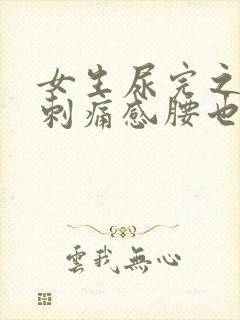 女生尿完之
刺痛感腰也
雲我無心